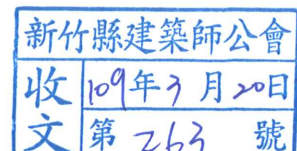 新竹縣建築師公會
收文
109年3月20日
第263號